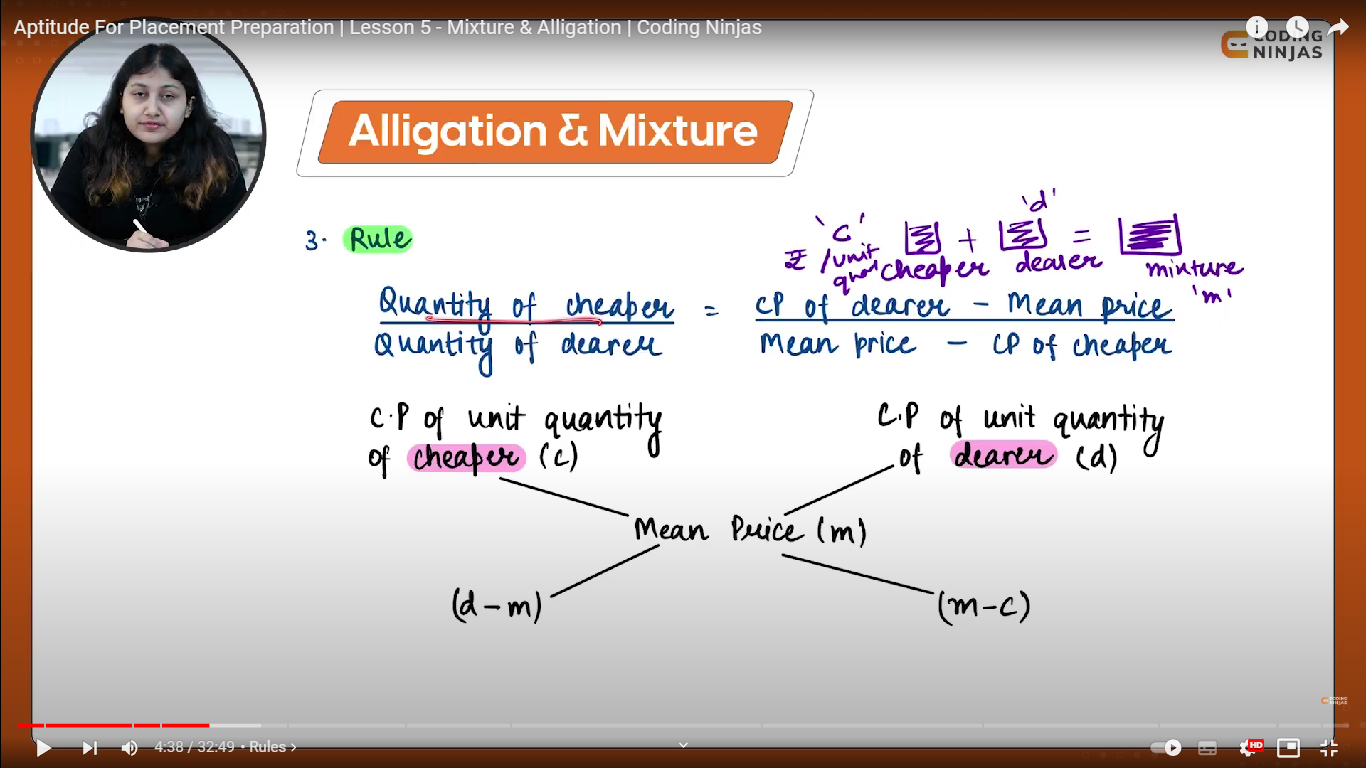 Aptitude For Placement Preparation | Lesson 5 - Mixture & Alligation | Coding Ninjas
CODING
NINJAS
Alligation & Mixture
3. Rule
'c'
'd'
+ =
/unit
cheaper
dearer
mixture
'm'
Quantity of cheaper = CP of dearer - Mean price
Quantity of dearer Mean price - CP of cheaper
C.P of unit quantity
of cheaper (c)
C.P of unit quantity
of dearer (d)
Mean Price (m)
(d-m)
(m-c)
4:38 / 32:49 • Rules >
HD